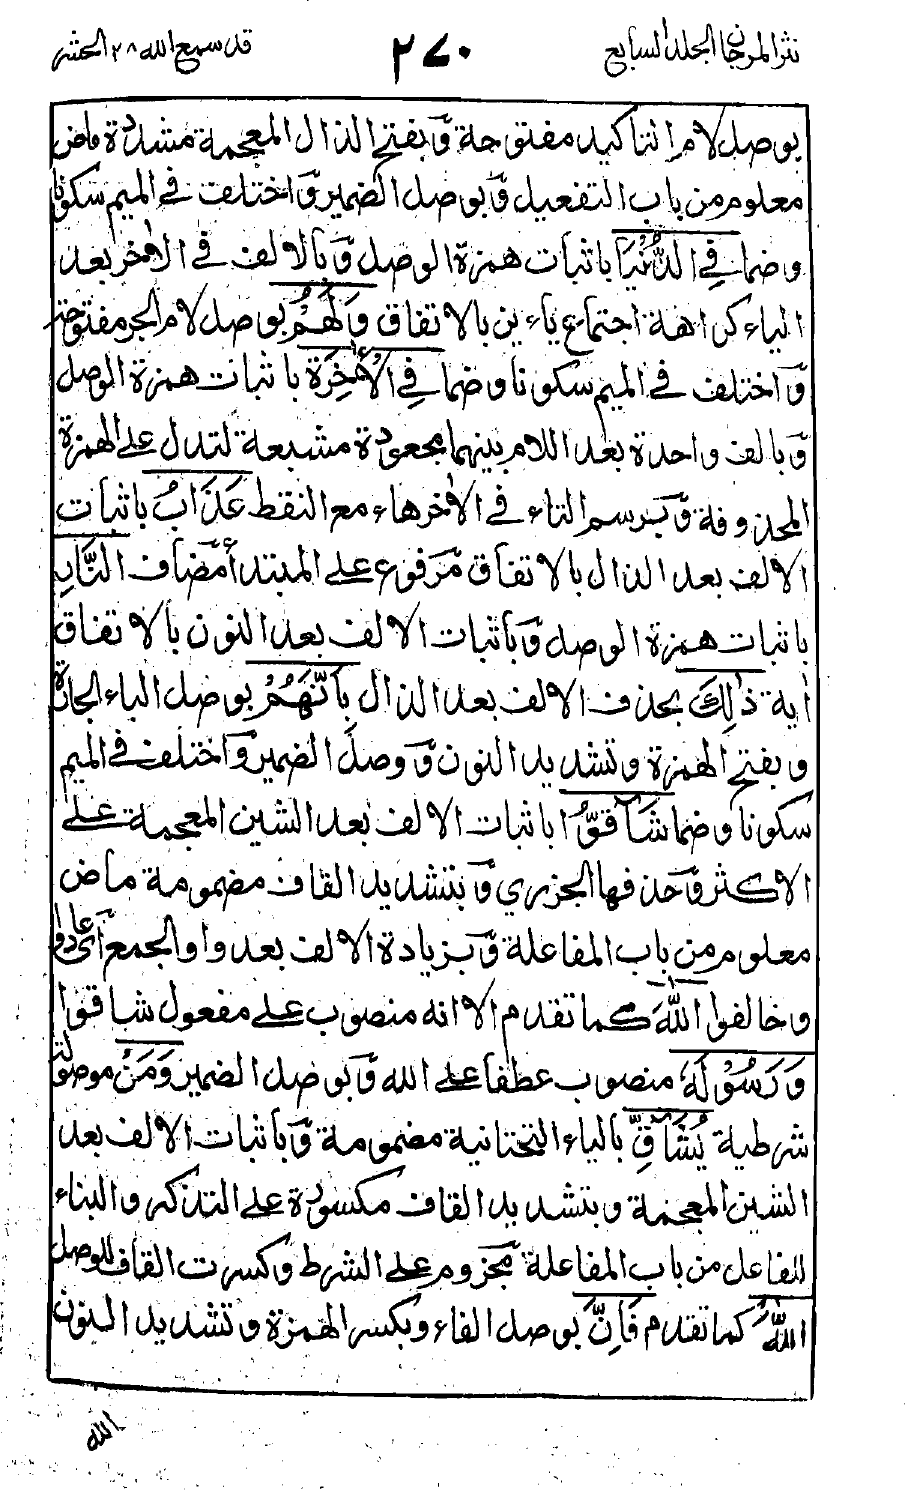 نثر المرجان الجلد السابع
٢٧٠
قد سمع الله ٢٨ الحشر
بوصل لام التاكيد مفتوحة وَبفتح الذال المعجمة مشددة ماض
معلوم من باب التفعيل وَبوصل الضمير وَاختلف في الميم سكونا
وضما فِي الدُّنْيَا باثبات همزة الوصل وَبالالف في الاخر بعد
الياء كراهة اجتماع ياءين بالاتفاق وَلَهُمْ بوصل لام الجر مفتوحة
وَاختلف في الميم سكونا وضما فِي الْأٰخِرَةِ باثبات همزة الوصل
وَبالف واحدة بعد اللام بينهما مجعودة مشبعة لتدل على الهمزة
المحذوفة وَبرسم التاء في الاخر هاء مع النقط عَذَابُ باثبات
الالف بعد الذال بالاتفاق مَرفوع على المبتدأ مضاف النَّارِ
باثبات همزة الوصل وَباثبات الالف بعد النون بالاتفاق
اٰية ذٰلِكَ بحذف الالف بعد الذال بِأَنَّهُمْ بوصل الباء الجارة
وبفتح الهمزة وتشديد النون وَوصل الضمير وَاختلف في الميم
سكونا وضما شَآقُّوا باثبات الالف بعد الشين المعجمة على
الاكثر وَحذفها الجزري وَبتشديد القاف مضمومة ماض
معلوم من باب المفاعلة وَبزيادة الالف بعد واو الجمع اَي عادوا
وخالفوا اللّٰهَ كما تقدم الا انه منصوب على مفعول شاقوا
وَرَسُوْلَهٗ منصوب عطفا على الله وَبوصل الضمير وَمَنْ موصولة
شرطية يُشَآقِّ بالياء التحتانية مضمومة وَباثبات الالف بعد
الشين المعجمة وبتشديد القاف مكسورة على التذكير والبناء
للفاعل من باب المفاعلة مجزوم على الشرط وكسرت القاف للوصل
اللّٰهَ كما تقدم فَاِنَّ بوصل الفاء وبكسر الهمزة وتشديد النون
الله